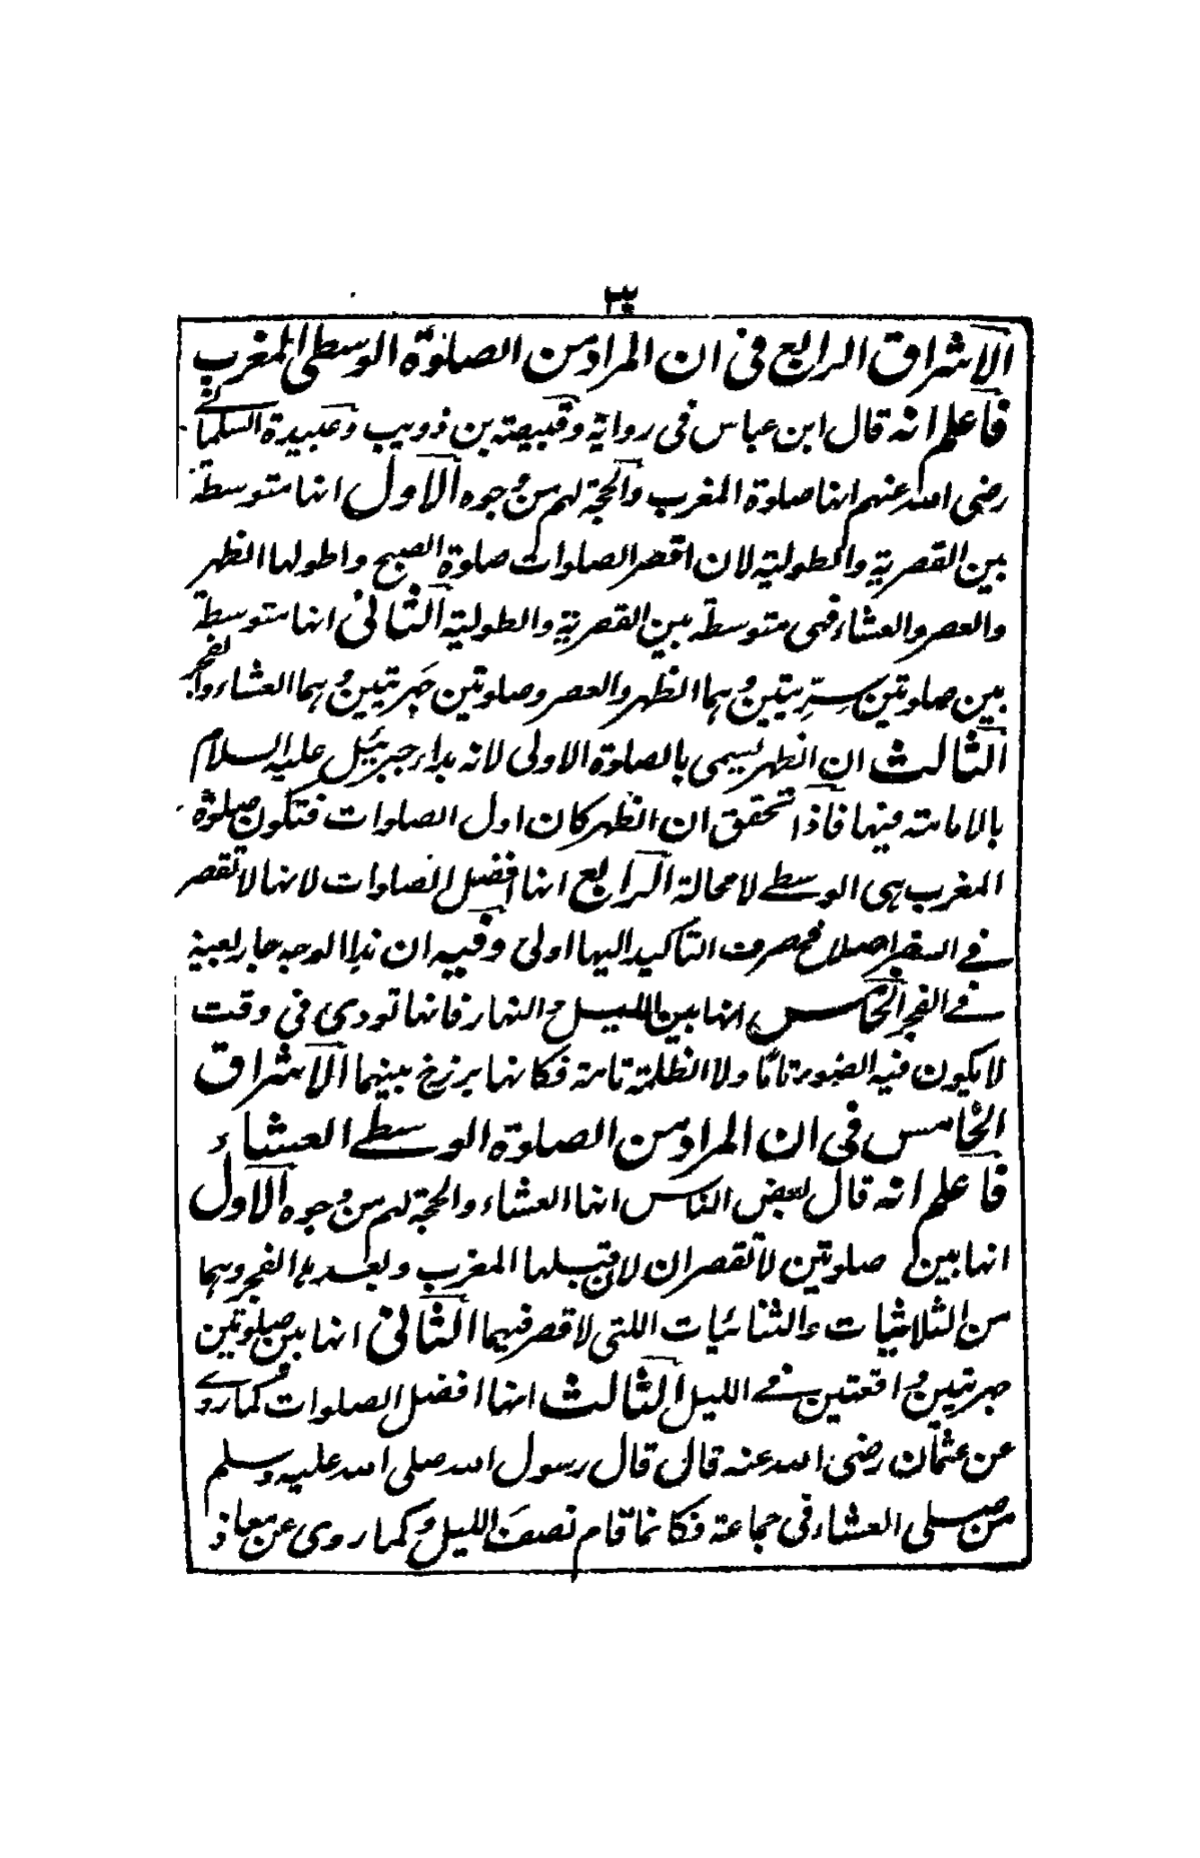 ٣
الاشراق الرابع فى ان المراد من الصلوة الوسطى المغرب
فاعلم انه قال ابن عباس فى رواية وقبيصة بن ذويب وعبيدة السلمانے
رضى الله عنهم انها صلوة المغرب والحجة لهم من وجوه الاول انها متوسطة
بين القصرية والطولية لان اقصر الصلوات صلوة الصبح واطولها الظهر
والعصر والعشاء فهى متوسطة بين القصرية والطولية الثانى انها متوسطة
بين صلوتين سرّيتين وهما الظهر والعصر وصلوتين جهريتين وهما العشاء والفجر
الثالث ان الظهر يسمى بالصلوة الاولى لانه بداء جبرئيل عليه السلام
بالامامته فيها فاذا تحقق ان الظهر كان اول الصلوات فتكون صلوة
المغرب هى الوسطے لا محالة الرابع انها افضل الصلوات لانها لا تقصر
فے السفر اصلا فصرف التاكيد اليها اولى وفيه ان هذا الوجه جار بعينه
فے الفجر الخامس انها بين الليل والنهار فانها تودى فى وقت
لا يكون فيه الضوء تامًّا ولا الظلمة تامة فكانها برزخ بينهما الاشراق
الخامس فى ان المراد من الصلوة الوسطے العشاء
فاعلم انه قال بعض الناس انها العشاء والحجة لهم من وجوه الاول
انها بين صلوتين لا تقصران لان قبلها المغرب وبعدها الفجر وهما
من الثلاثيات والثنائيات اللتى لا قصر فيهما الثانى انها بين صلوتين
جهريتين واقعتين فے الليل الثالث انها افضل الصلوات كما روے
عن عثمان رضى الله عنه قال قال رسول الله صلى الله عليه وسلم
من صلى العشاء فى جماعة فكانما قام نصف الليل وكما روى عن معاذ